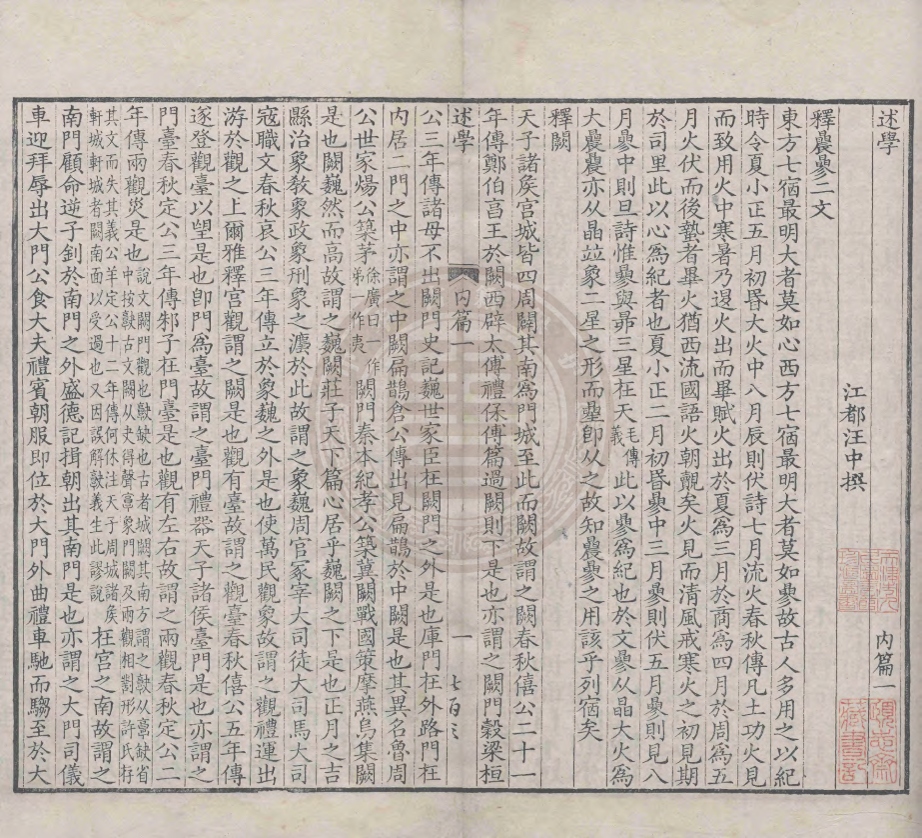 述學 內篇一
江都汪中撰
釋曟曑二文
東方七宿最明大者莫如心西方七宿最明大者莫如曑故古人多用之以紀
時令夏小正五月初昏大火中八月辰則伏詩七月流火春秋傳凡土功火見
而致用火中寒暑乃退火出而畢賦火出於夏爲三月於商爲四月於周爲五
月火伏而後蟄者畢火猶西流國語火朝覿矣火見而清風戒寒火之初見期
於司里此以心爲紀者也夏小正二月初昏曑中三月曑則伏五月曑則見八
月曑中則旦詩惟曑與昴三星在天毛傳義此以曑爲紀也於文曑从晶大火爲
大曟曟亦从晶竝象二星之形而曐卽从之故知曟曑之用該乎列宿矣
釋闕
天子諸矦宮城皆四周闕其南爲門城至此而闕故謂之闕春秋僖公二十一
年傳鄭伯亯王於闕西辟太傅禮保傅篇過闕則下是也亦謂之闕門穀梁桓
述學 內篇一 一 七百
公三年傳諸母不出闕門史記巍世家臣在闕門之外是也庫門在外路門在
內居二門之中亦謂之中闕扁鵲倉公傳出見扁鵲於中闕是也其異名魯周
公世家煬公築茅徐廣曰一作弟一作夷闕門秦本紀孝公築冀闕戰國策摩燕烏集闕
是也闕巍然而高故謂之巍闕莊子天下篇心居乎巍闕之下是也正月之吉
縣治象教象政象刑象之灋於此故謂之象巍周官冢宰大司徒大司馬大司
寇職文春秋哀公三年傳立於象巍之外是也使萬民觀象故謂之觀禮運出
游於觀之上爾雅釋宮觀謂之闕是也觀有臺故謂之觀臺春秋僖公五年傳
遂登觀臺以望是也卽門爲臺故謂之臺門禮器天子諸侯臺門是也亦謂之
門臺春秋定公三年傳邾子在門臺是也觀有左右故謂之兩觀春秋定公二
年傳兩觀災是也說文闕門觀也𣤶缺也古者城闕其南方謂之𣤶从𩫏缺省中按𣤶古文闕从夬得聲𩫏象門闕及兩觀相對形許氏存
其文而失其義公羊定公十二年傳何休注天子周城諸矦軒城軒城者闕南面以受過也又因誤解𣤶義生此謬說在宮之南故謂之
南門顧命逆子釗於南門之外盛德記揖朝出其南門是也亦謂之大門司儀
車迎拜辱出大門公食大夫禮賓朝服即位於大門外曲禮車馳而騶至於大